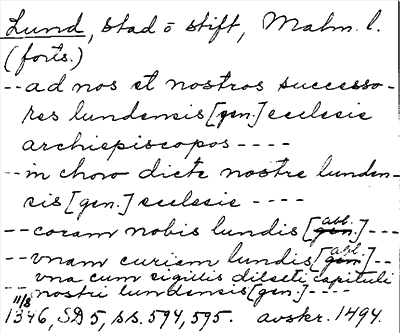 Lund, stad o stift, Malm. l.
(forts.)
-- ad nos et nostros successo-
res lundensis [gen.] ecclesie
archiepiscopos ----
-- in choro dicte nostre lunden-
sis [gen.] ecclesie ----
-- coram nobis lundis [gen. abl.] ---
-- vnam curiam lundis [gen. abl.] --
vna cum sigillis dilecti capituli
-- nostri lundensis [gen.] ----
11/8 1346, SD 5, ss. 594, 595. avskr. 1494.